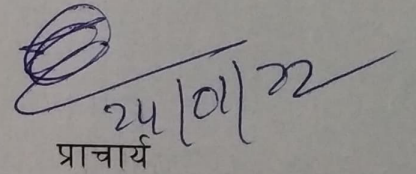 24/01/22
प्राचार्य